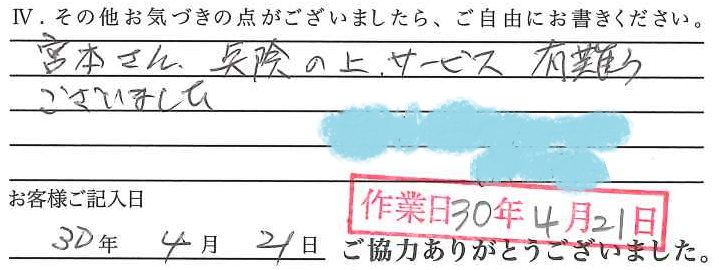 Ⅳ．その他お気づきの点がございましたら、ご自由にお書きください。
宮本さん、の上、サービス 有難う
ございました
お客様ご記入日
作業日30年4月21日
30年 4月 21日 ご協力ありがとうございました。